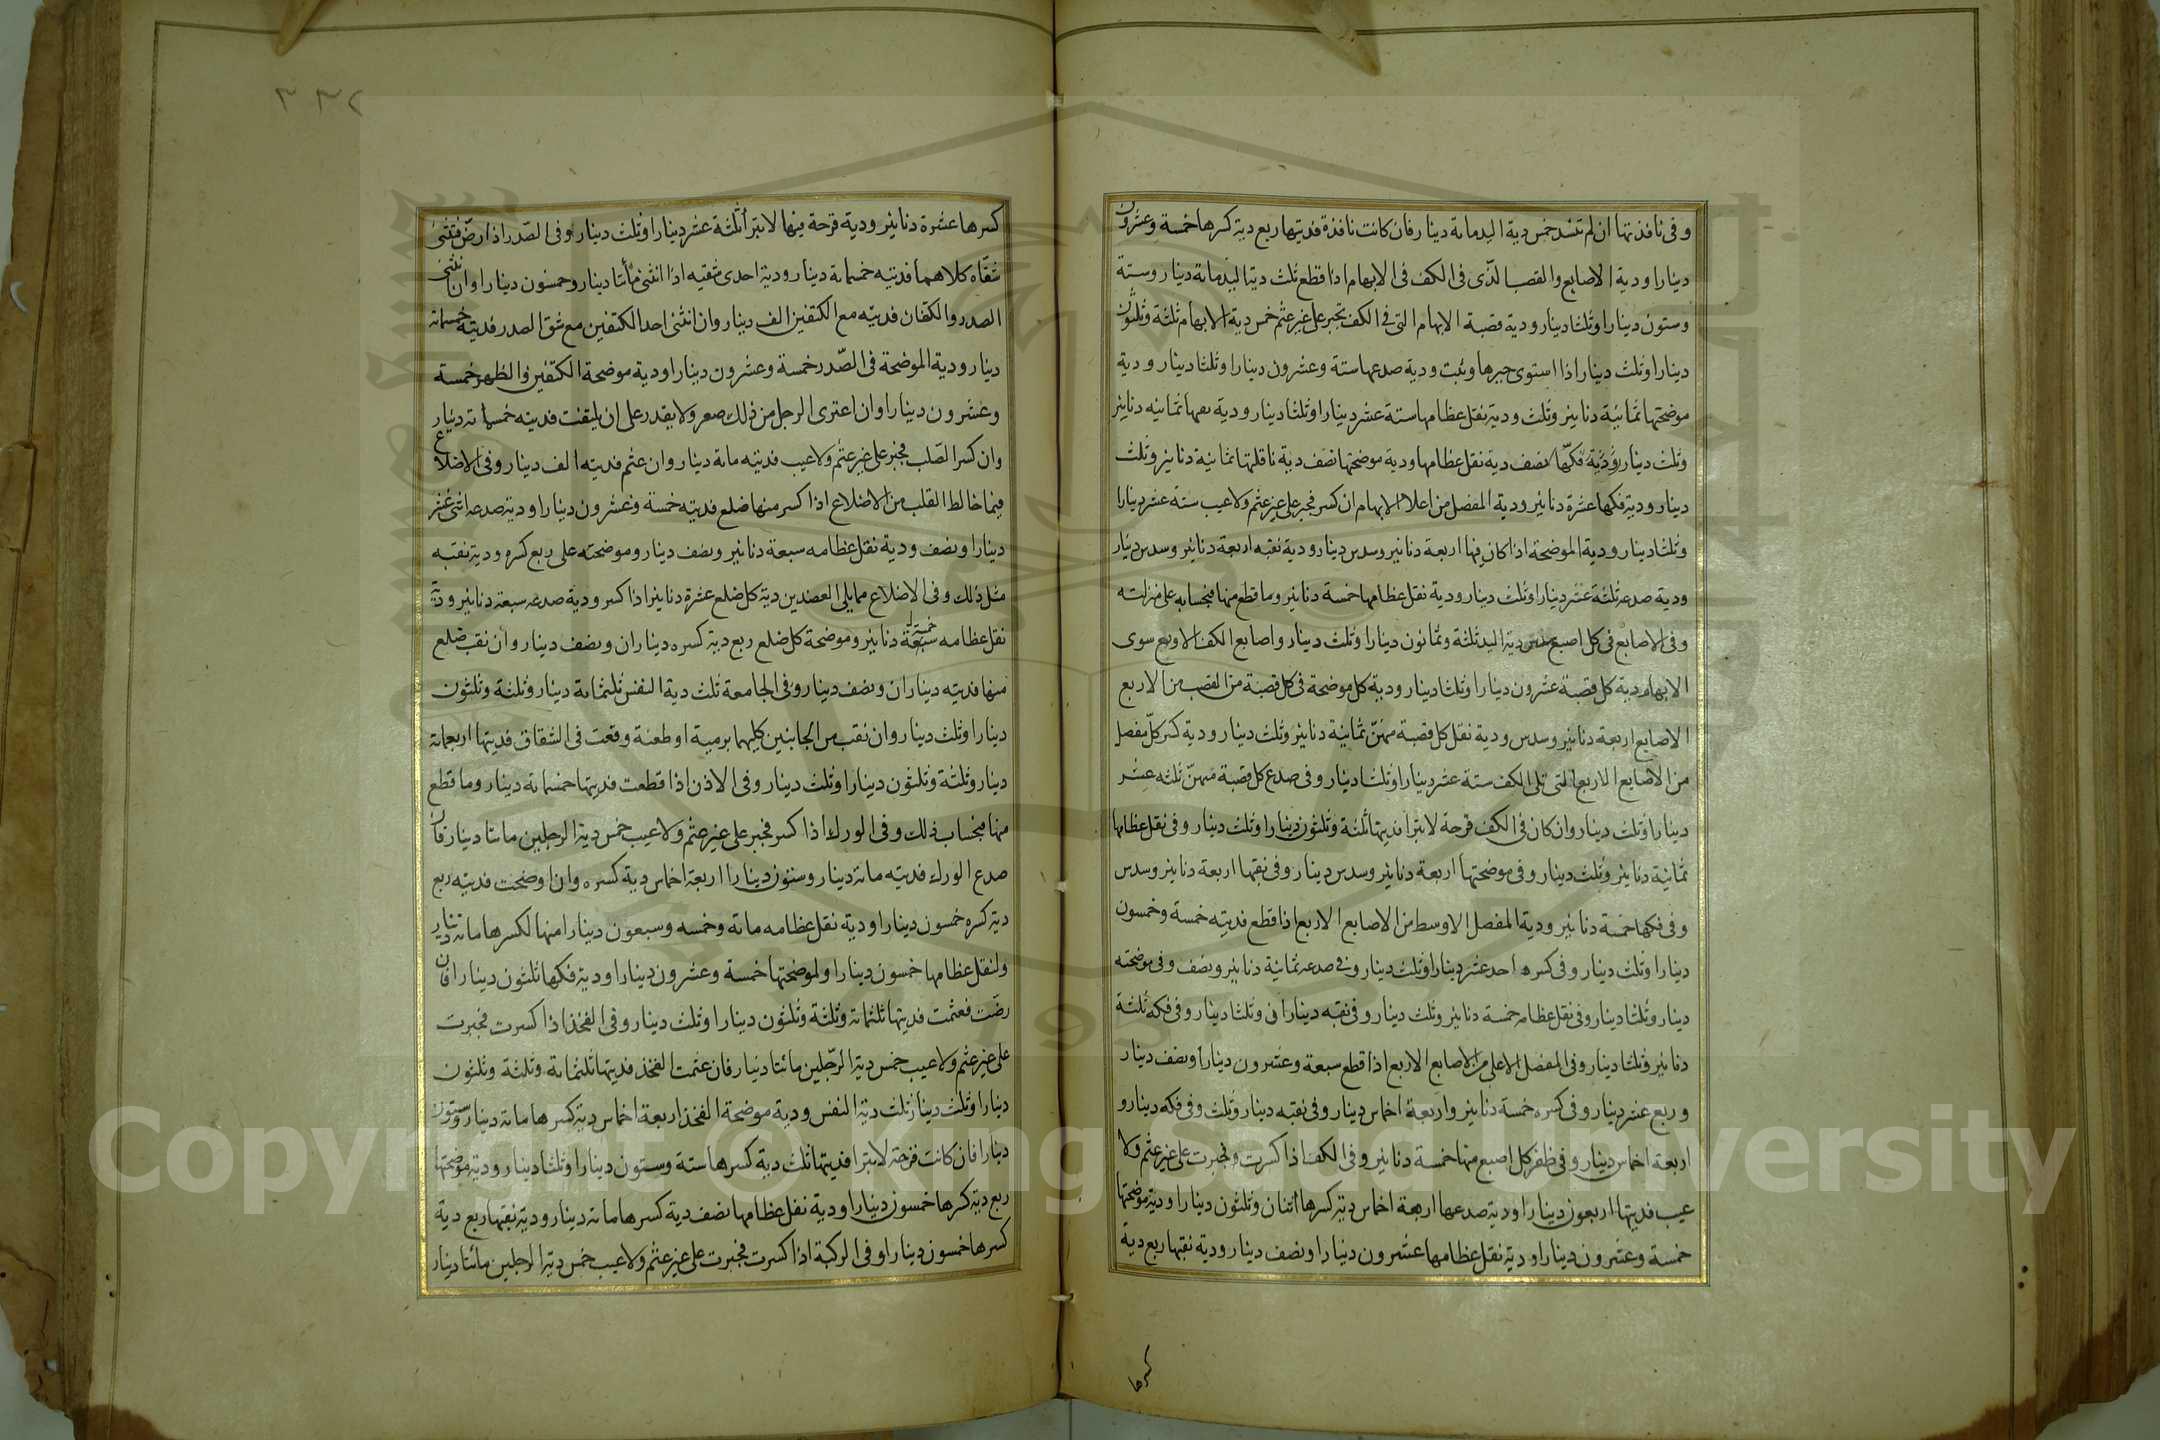 وفى نافذتها ان لم تنسد خمس دية اليد مائة دينار فان كانت نافذة فديتها ربع دية كسرها خمسة وعشرون
دينارا ودية الاصابع والقصب الذى فى الكف فى الابهام اذا قطع ثلث دية اليد مائة دينار وستة
وستون دينارا وثلثا دينار ودية قصبة الابهام التى فى الكف تجبر على غير عثم خمس دية الابهام ثلثة وثلثون
دينارا وثلث دينار اذا استوى جبرها وثبت ودية صدعها ستة وعشرون دينارا وثلثا دينار ودية
موضحتها ثمانية دنانير وثلث ودية نقل عظامها ستة عشر دينارا وثلثا دينار ودية نقبها ثمانيه دنانير
وثلث دينار ودية فكها نصف دية نقل عظامها ودية موضحتها نصف دية ناقلتها ثمانية دنانير وثلث
دينار ودية فكها عشرة دنانير ودية المفصل من اعلا الابهام ان كسر فجبر على غير عثم ولا عيب ستة عشر دينارا
وثلثا دينار ودية الموضحة اذا كان فيها اربعة دنانير وسدس دينار ودية نقبه اربعة دنانير وسدس دينار
ودية صدعه ثلثة عشر دينارا وثلث دينار ودية نقل عظامها خمسة دنانير وما قطع منها فبحسابه على منزلته
وفى الاصابع فى كل اصبع سدس دية اليد ثلثة وثمانون دينارا وثلث دينار واصابع الكف الاربع سوى
الابهام دية كل قصبة عشرون دينارا وثلثا دينار ودية كل موضحة فى كل قصبة من القصب من الاربع
الاصابع اربعة دنانير وسدس ودية نقل كل قصبة منهن ثمانية دنانير وثلث دينار ودية كسر كل مفصل
من الاصابع الاربع التى تلى الكف ستة عشر دينارا وثلثا دينار وفى صدع كل قصبة منهن ثلثه عشر
دينارا وثلث دينار وان كان فى الكف قرحة لا تبرا فديتها ثلثة وثلثون دينارا وثلث دينار وفى نقل عظامها
ثمانية دنانير وثلث دينار وفى موضحتها اربعة دنانير وسدس دينار وفى نقبها اربعة دنانير وسدس
وفى فكها خمسة دنانير ودية المفصل الاوسط من الاصابع الاربع اذا قطع فديته خمسة وخمسون
دينارا وثلث دينار وفى كسره احد عشر دينارا وثلث دينار وفى صدعه ثمانية دنانير ونصف وفى موضحته
دينار وثلثا دينار وفى نقل عظامه خمسة دنانير وثلث دينار وفى نقبه ديناران وثلثا دينار وفى فكه ثلثة
دنانير وثلثا دينار وفى المفصل الاعلى من الاصابع الاربع اذا قطع سبعة وعشرون دينارا ونصف دينار
وربع عشر دينار وفى كسره خمسة دنانير واربعة اخماس دينار وفى نقبه دينار وثلث وفى فكه دينار و
اربعة اخماس دينار وفى ظفر كل اصبع منها خمسة دنانير وفى الكف اذا كسرت وجبرت على غير عثم ولا
عيب فديتها اربعون دينارا ودية صدعها اربعة اخماس دية كسرها اثنان وثلثون دينارا ودية موضحتها
خمسة وعشرون دينارا ودية نقل عظامها عشرون دينارا ونصف دينار ودية نقبها ربع دية
كسرها
٣٣٢
كسرها عشرة دنانير ودية قرحة فيها لا تبرأ ثلثة عشر دينارا وثلث دينار وفى الصدر اذا رض فثنى
شقاه كلاهما فديته خمسمائة دينار ودية احدى شقيه اذا انثنى مأتا دينار وخمسون دينارا وان انثنى
الصدر والكتفان فديته مع الكتفين الف دينار وان انثنى احد الكتفين مع شق الصدر فديته خمسمائة
دينار ودية الموضحة فى الصدر خمسة وعشرون دينارا ودية موضحة الكتفين والظهر خمسة
وعشرون دينارا وان اعترى الرجل من ذلك صعر ولا يقدر على ان يلتفت فديته خمسمائة دينار
وان كسر الصلب فجبر على غير عثم ولا عيب فديته مائة دينار وان عثم فديته الف دينار وفى الاضلاع
فيما خالط القلب من الاضلاع اذا كسر منها ضلع فديته خمسة وعشرون دينارا ودية صدعه اثنى عشر
دينارا ونصف ودية نقل عظامه سبعة دنانير ونصف دينار وموضحته على ربع كسره ودية نقبه
مثل ذلك وفى الاضلاع مما يلى العضدين دية كل ضلع عشرة دنانير اذا كسر ودية صدعه سبعة دنانير ودية
نقل عظامه خمسة دنانير وموضحة كل ضلع ربع دية كسره ديناران ونصف دينار وان نقب ضلع
منها فديته ديناران ونصف دينار وفى الجامعة ثلث دية النفس ثلثمائة دينار وثلثة وثلثون
دينارا وثلث دينار وان نقب من الجانبين كليهما برمية او طعنة وقعت فى الشقاق فديتها اربعمائة
دينار وثلثة وثلثون دينارا وثلث دينار وفى الاذن اذا قطعت فديتها خمسمائة دينار وما قطع
منها فبحساب ذلك وفى الورك اذا كسر فجبر على غير عثم ولا عيب خمس دية الرجلين مائتا دينار فان
صدع الورك فديته مائة دينار وستون دينارا اربعة اخماس دية كسره وان اوضحت فديته ربع
دية كسره خمسون دينارا ودية نقل عظامه مائة وخمسه وسبعون دينارا منها لكسرها مائة دينار
ولنقل عظامها خمسون دينارا ولموضحتها خمسة وعشرون دينارا ودية فكها ثلثون دينارا فان
رضت فعثمت فديتها ثلثمائة وثلثة وثلثون دينارا وثلث دينار وفى الفخذ اذا كسرت فجبرت
على غير عثم ولا عيب خمس دية الرجلين مائتا دينار فان عثمت الفخذ فديتها ثلثمائة وثلثة وثلثون
دينارا وثلث دينار ثلث دية النفس ودية موضحة الفخذ اربعة اخماس دية كسرها مائة دينار وستون
دينارا فان كانت قرحة لا تبرا فديتها ثلث دية كسرها ستة وستون دينارا وثلثا دينار ودية موضحتها
ربع دية كسرها خمسون دينارا ودية نقل عظامها نصف دية كسرها مائة دينار ودية نقبها ربع دية
كسرها خمسون دينارا وفى الركبة اذا كسرت فجبرت على غير عثم ولا عيب خمس دية الرجلين مائتا دينار
Copyright © King Saud University